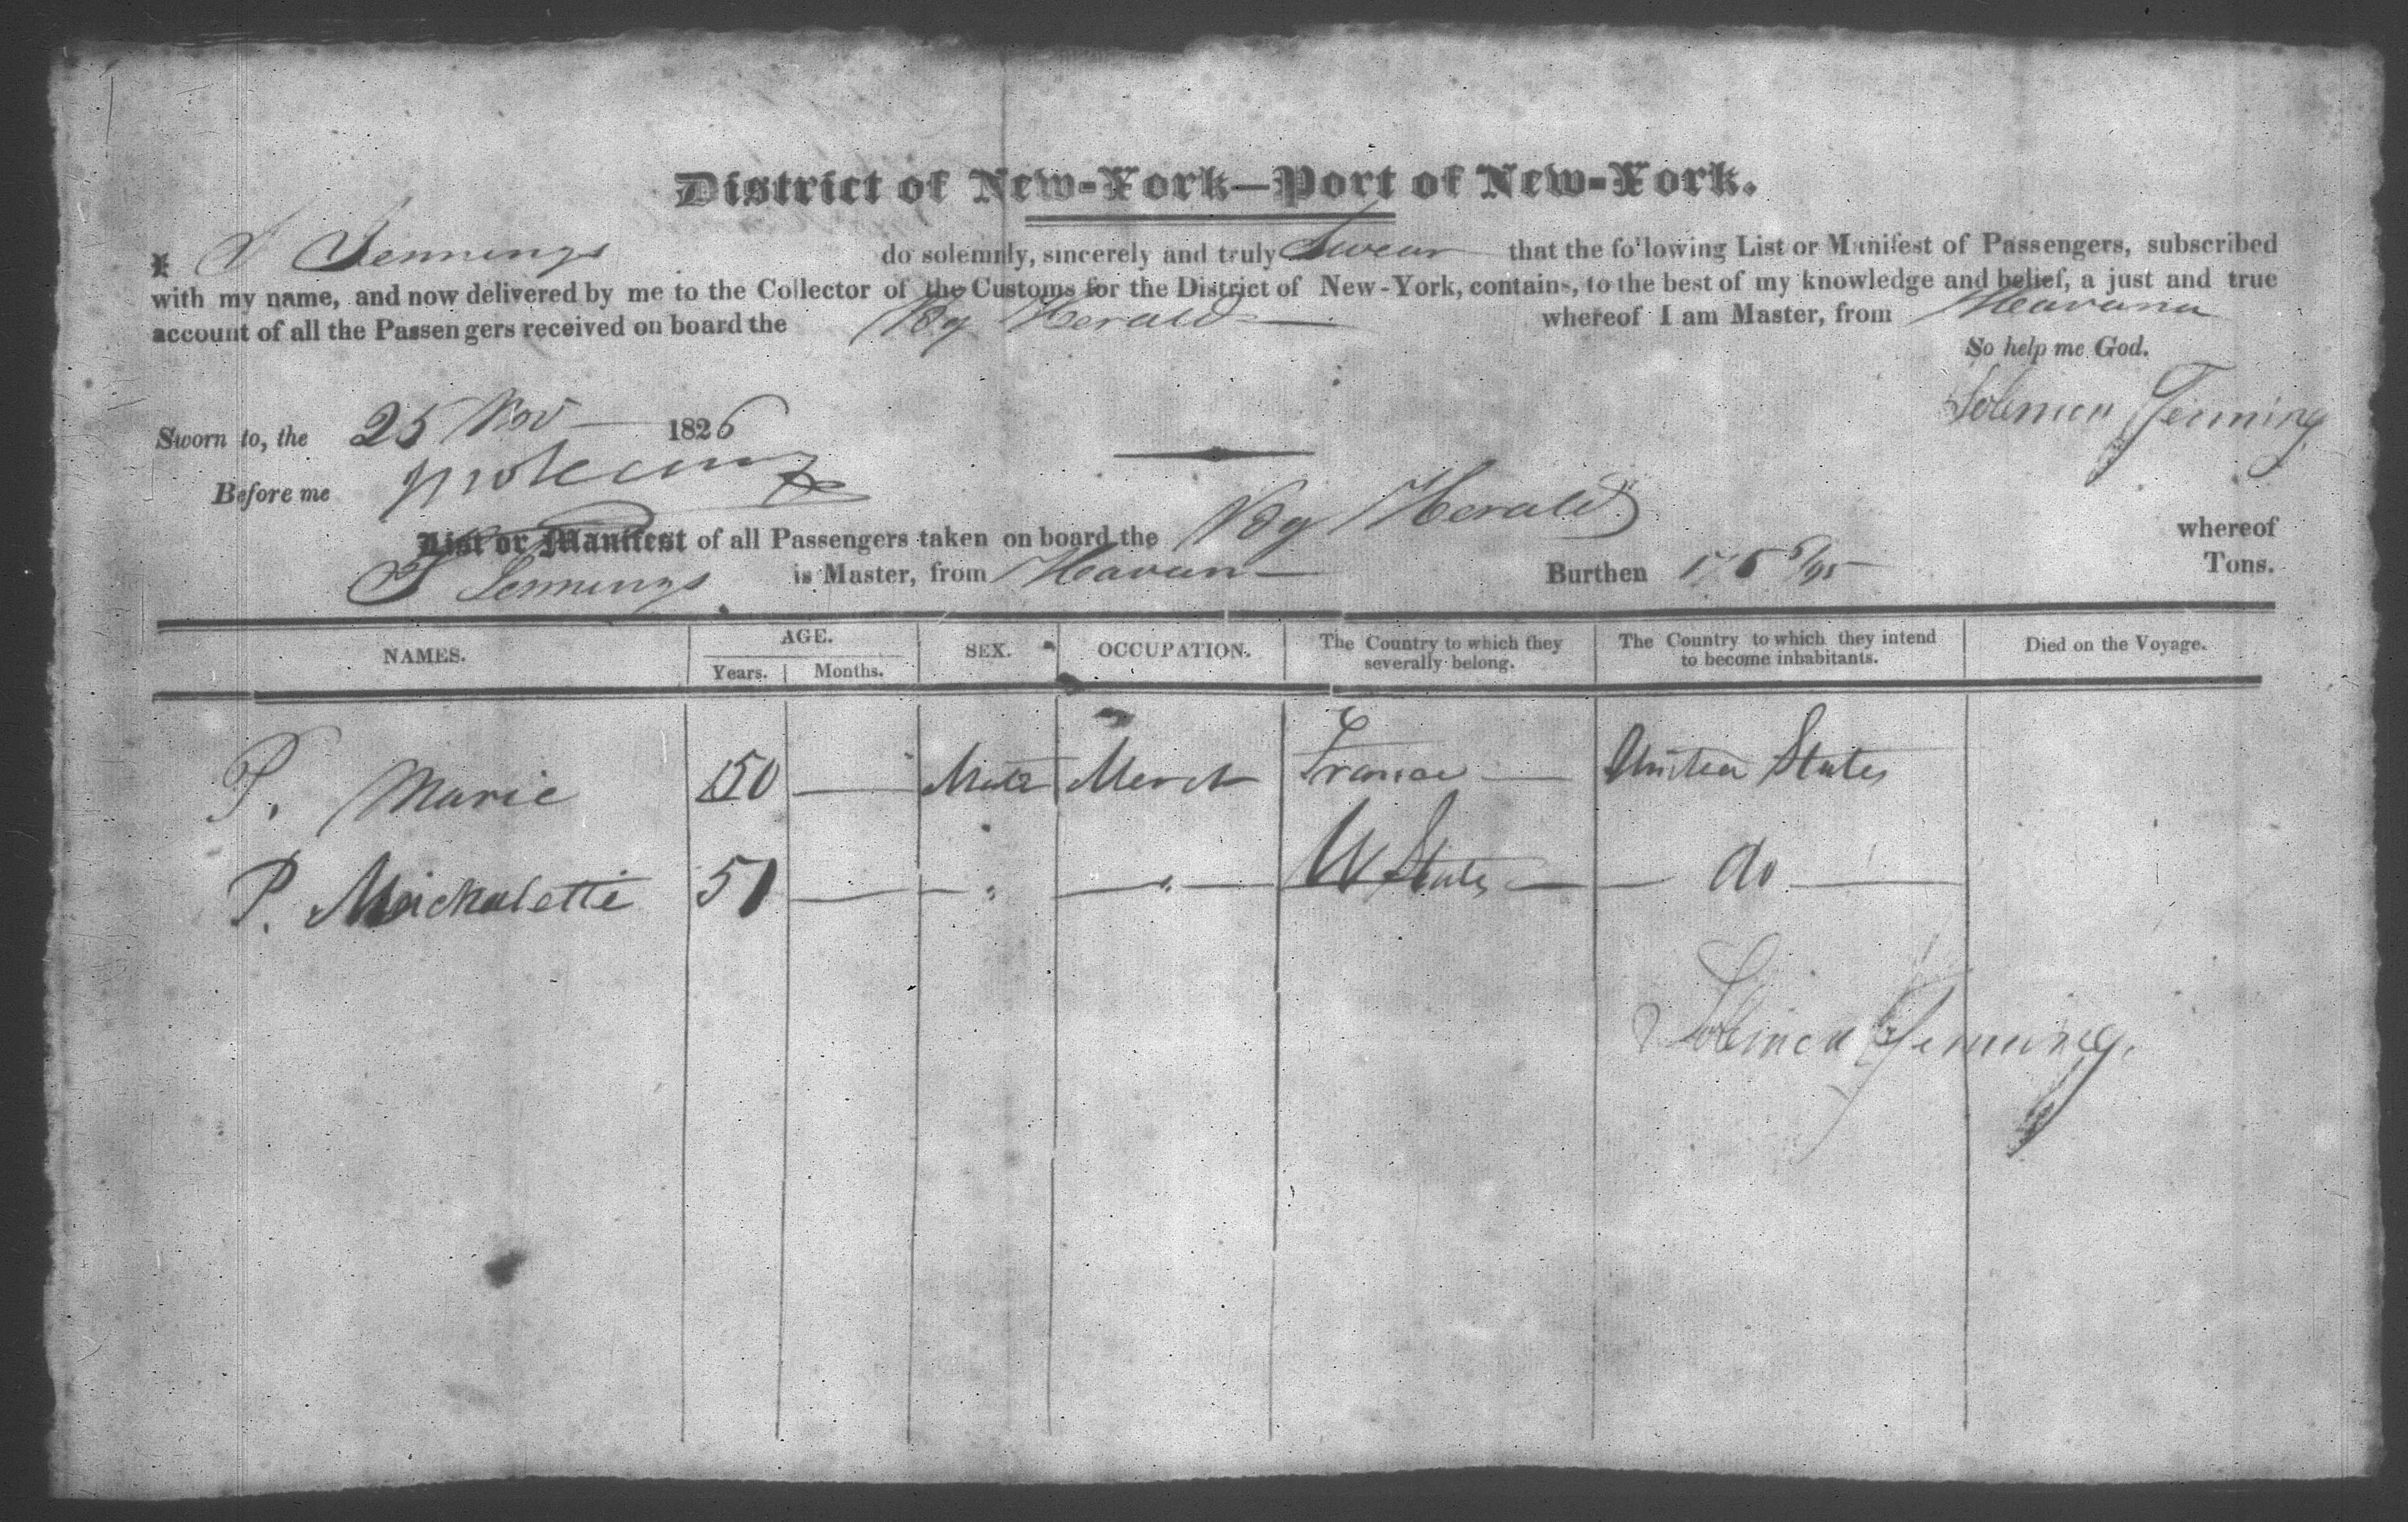 District of New-York—Port of New-York.
I, S Jennings do solemnly, sincerely and truly Swear that the following List or Manifest of Passengers, subscribed
with my name, and now delivered by me to the Collector of the Customs for the District of New-York, contains, to the best of my knowledge and belief, a just and true
account of all the Passengers received on board the Bg Herald whereof I am Master, from Havana
So help me God.
Solomon Jennings
Sworn to, the 25 Nov 1826
Before me
List or Manifest of all Passengers taken on board the Bg Herald whereof
S Jennings is Master, from Havana Burthen Tons.
NAMES. AGE. SEX. OCCUPATION. The Country to which they severally belong. The Country to which they intend to become inhabitants. Died on the Voyage.
Years. Months.
P. Marie 50 — Male Merch France — United States
P. Michaletti 51 — " — " — U States — do —
Solomon Jennings